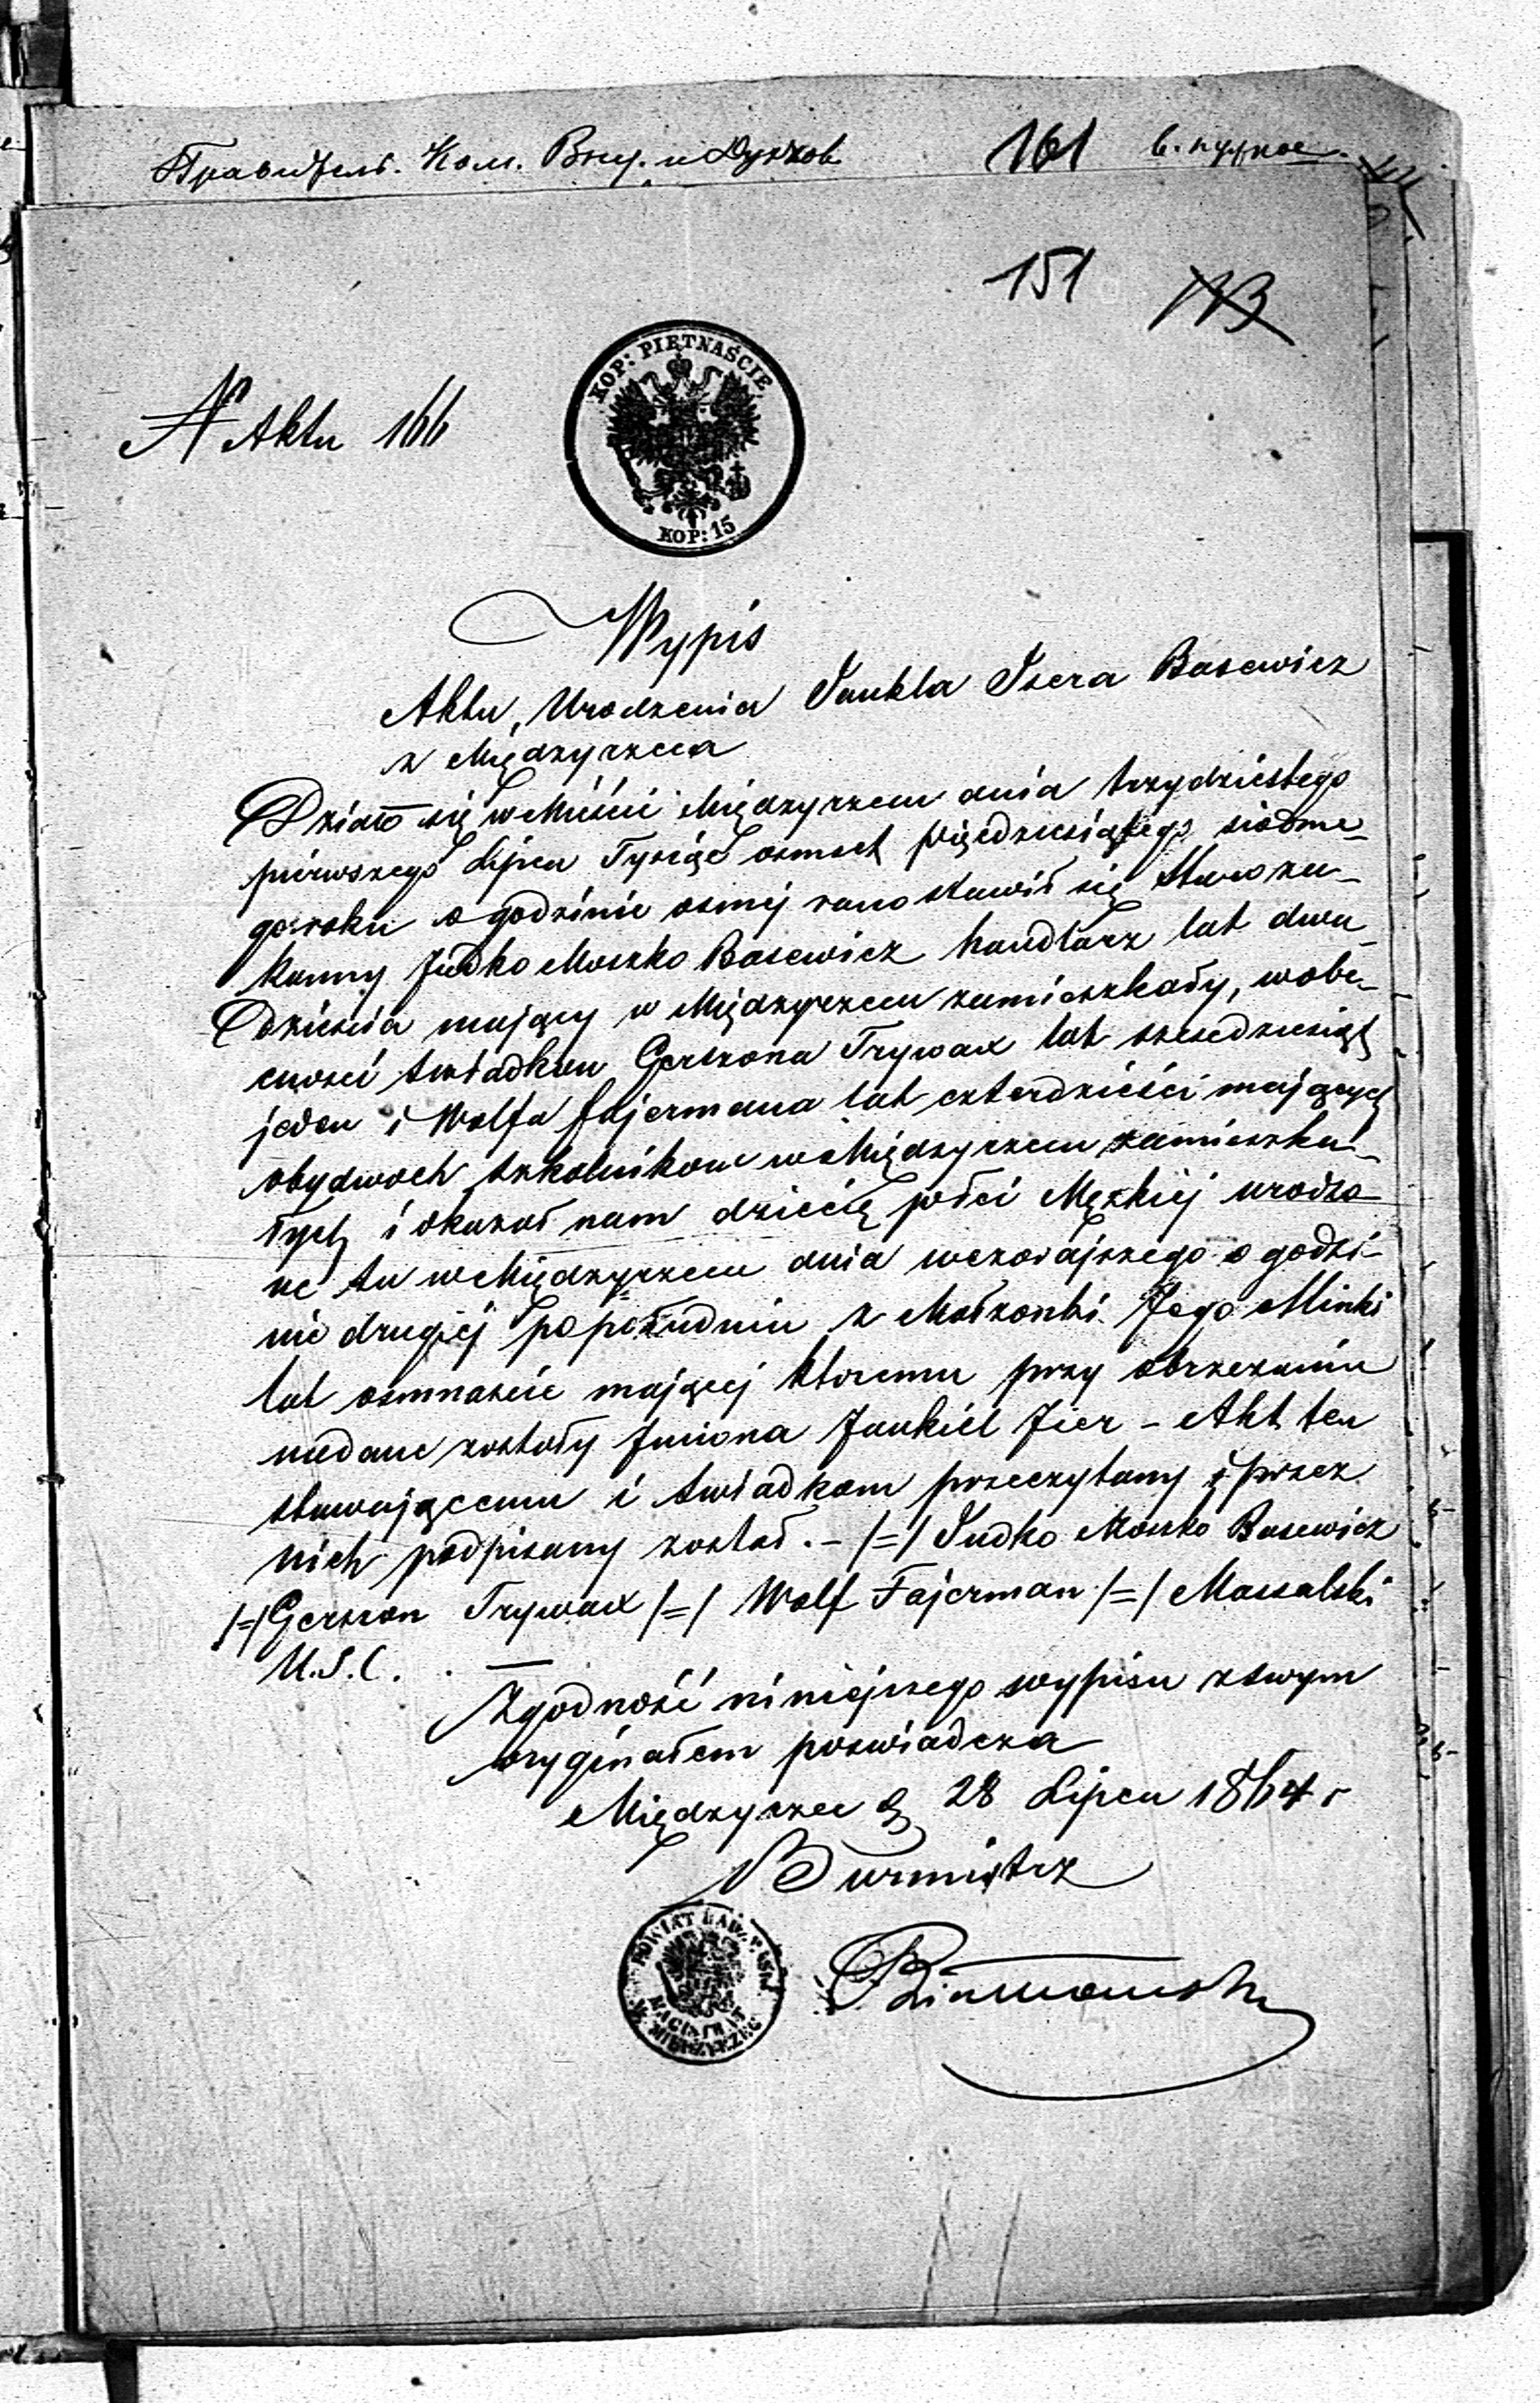 Правительс. Ком. Внут. и Духов 161
151
N Aktu 166
KOP: PIĘTNAŚCIE
KOP: 15
Wypis
Aktu, Urodzenia Jankla Isera Basewicz
z Międzyrzeca
Działo się w Mieście Międzyrzecu dnia trzydziestego
pierwszego Lipca Tysiąc osmset pięćdziesiątego siodme-
go roku o godzinie osmej rano stawił się Starozu-
konny Judko Moszko Basewicz handlarz lat dwa-
dzieścia mający w Międzyrzecu zamieszkały, w obe-
cności świadków Gerszona Trywax lat szesćdziesiąt
jeden i Wolfa Fajermana lat czterdzieści mających
obydwoch szkolników w Międzyrzecu zamieszka-
łych i okazał nam dziecię płci Męzkiej urodzo-
ne tu w Międzyrzecu dnia wczorajszego o godzi-
nie drugiej po południu z Małzonki Jego Minki
lat osmnaście mającej ktoremu przy obrzezaniu
nadane zostały Imiona Jankiel Izer - Akt ten
stawającemu i świadkom przeczytany i przez
nich podpisany został. - /=/ Judko Mosko Basewicz
/=/ Gerszon Trywax /=/ Wolf Fajerman /=/ Massalski
U.S.C. . —
Zgodność niniejszego wypisu z swym
oryginałem poświadcza
Międzyrzec d 28 Lipca 1864 r
Burmistrz
POWIAT RADZYŃSKI
MAGISTRAT
M. MIĘDZYRZEC